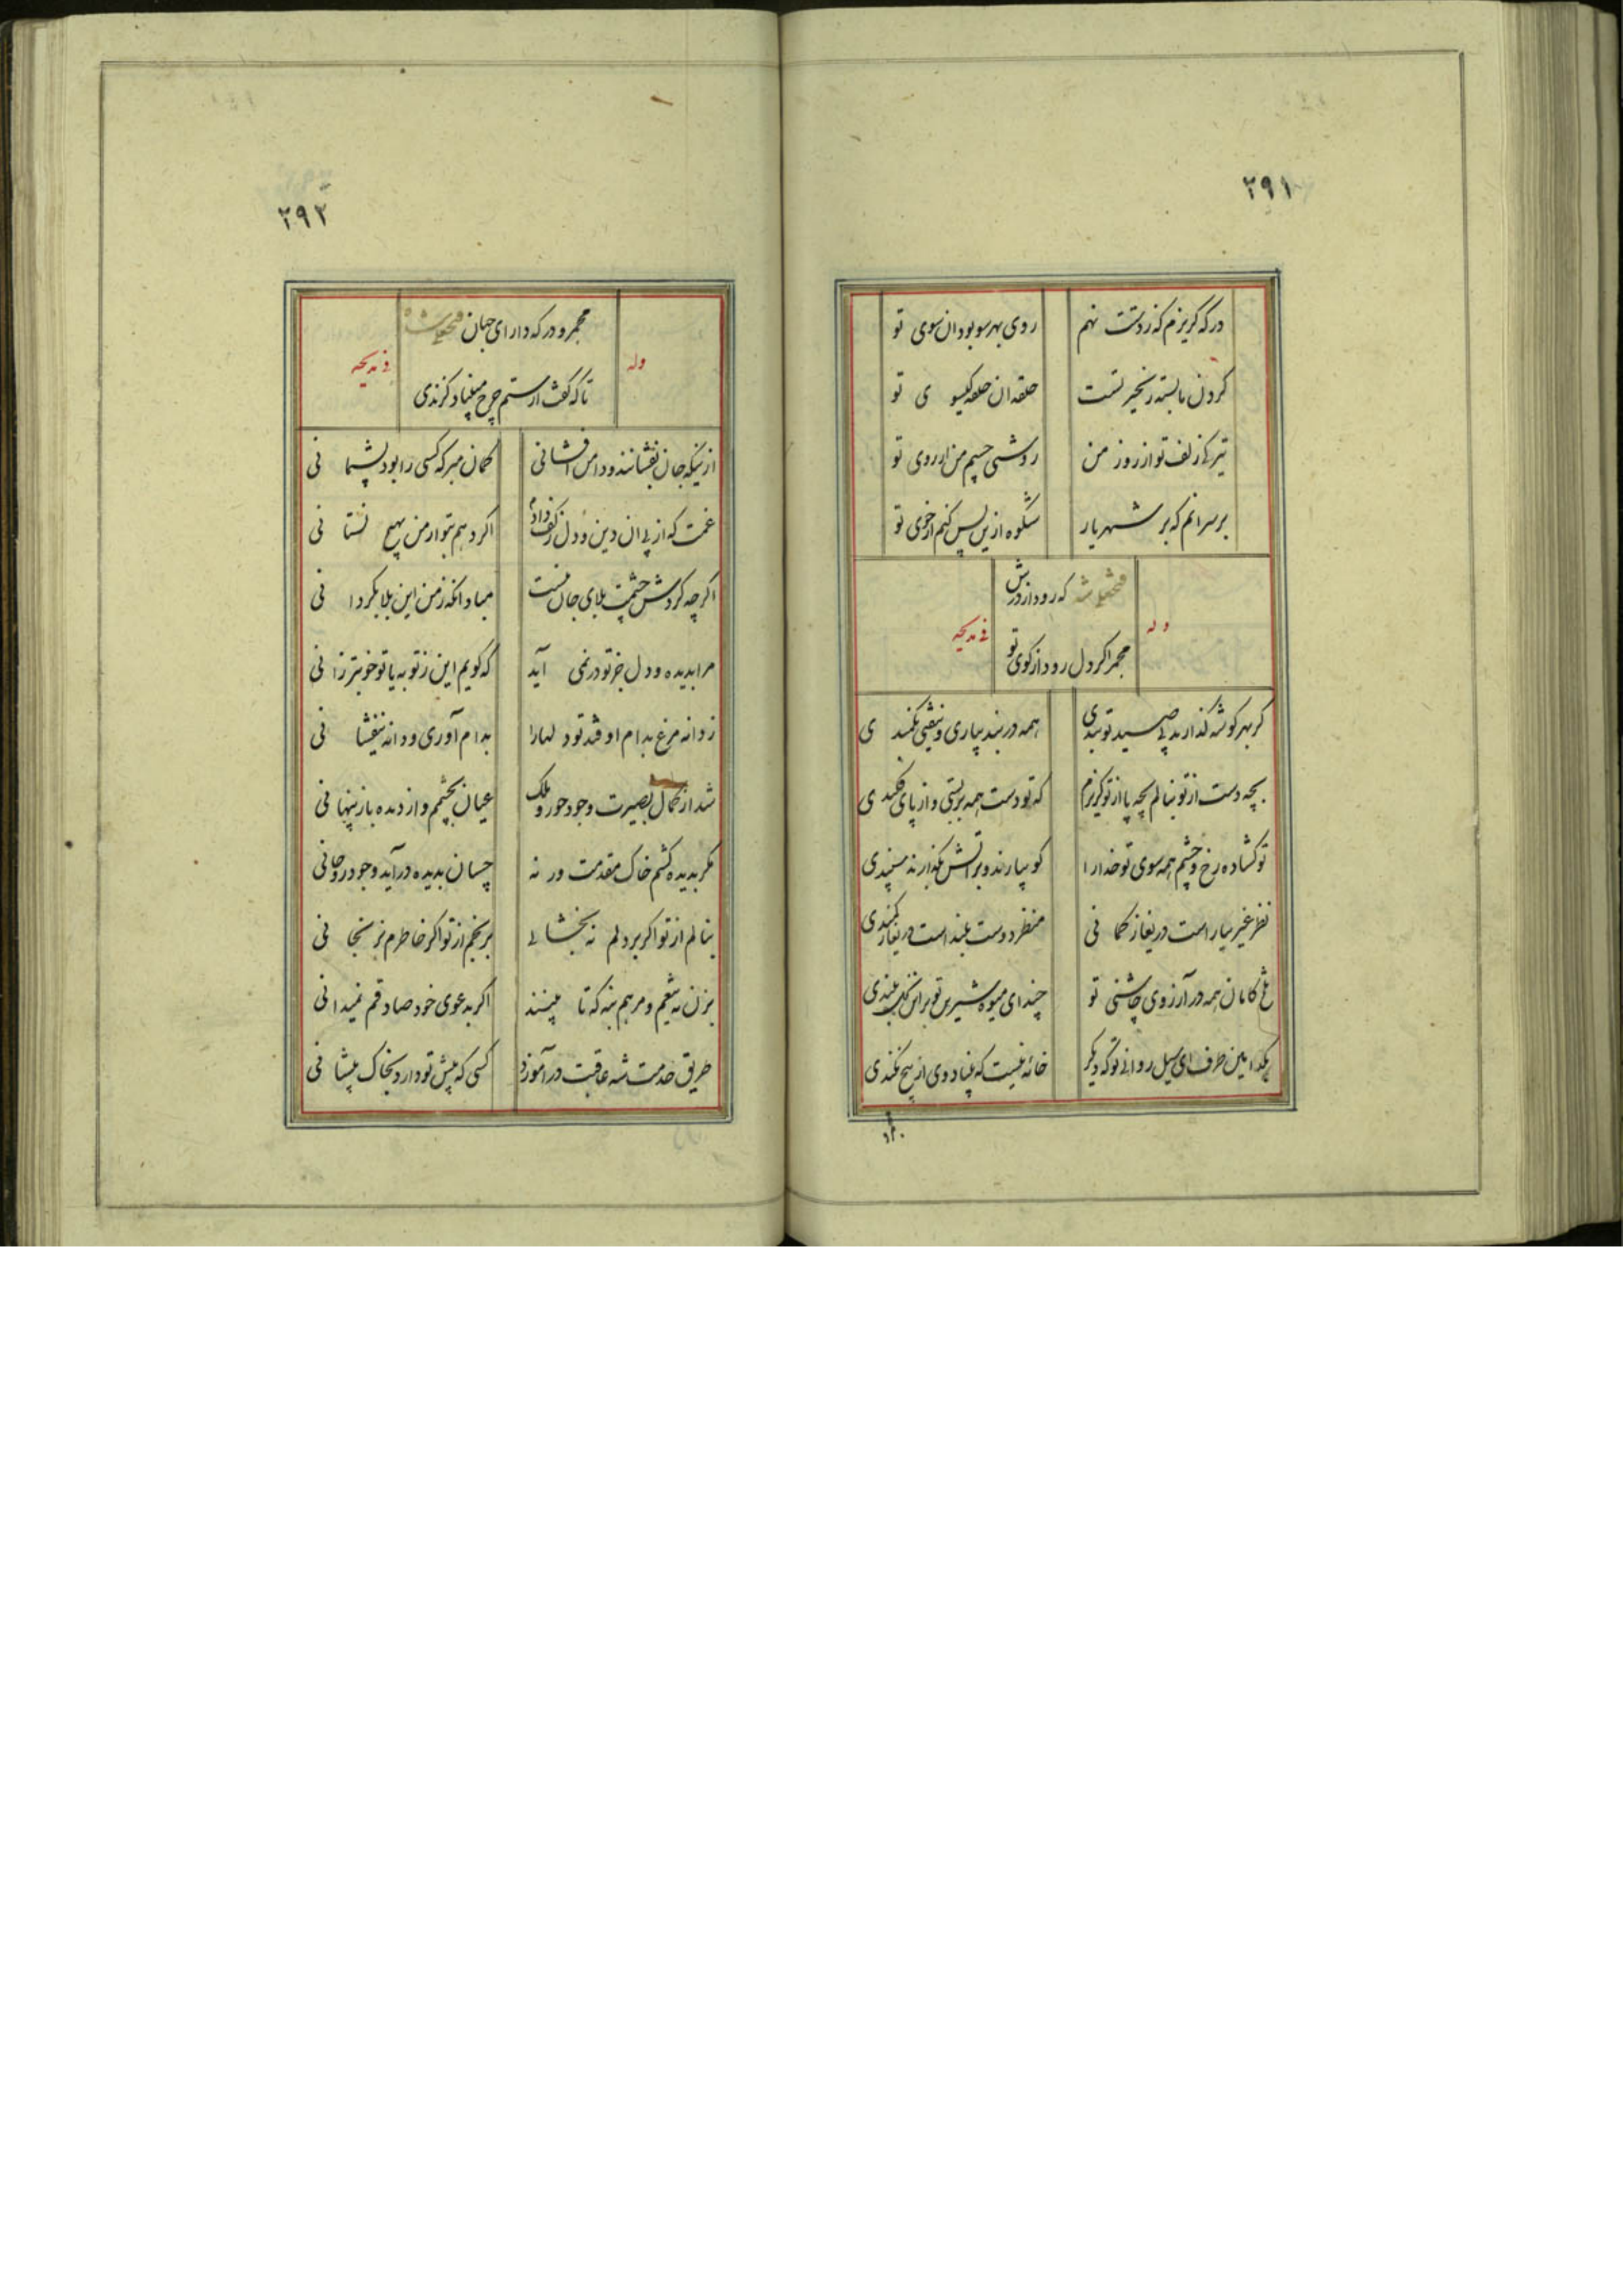 ۲۹۱
ور که گریزم که ز دستت نهم روی بهر سو بود آن سوی تو
گردن ما بسته زنجیر تست حلقه آن حلقه گیسو ی تو
تیرگی زلف تو از روز من روشنی چشم من از روی تو
بر سر آنم که بر شهریار شکوه ازین پس کنم از خوی تو
فتحعلی شه که رود از درش
وله
فی مدیحه
مجمر اگر دل رود از کوی تو
گر بهر گوشه گذارند پی صید تو بندی همه در بند بیاری و نیفتی بکمند ی
بچه دست از تو بنالم بچه پا از تو گریزم که تو دست همه بر بستی و از پای فکند ی
تو گشاده رخ و چشم همه سوی تو خدا را کو بیارند و بر آتش بگذارند سپندی
نظر غیر بیار است دریغا ز کما نی منظر دوست بلند است دریغا ز کمندی
تلخ کامان همه در آرزوی چاشنی تو چند ای میوه شیرین تو بر این نخل بلندی
بکدامین طرف ای سیل روانی تو که دیگر خانه نیست که بنیاد وی از بیخ نکندی
۲۹۲
مجمر و درگه دارای جهان فتحعلی شاه
وله
فی مدیحه
تا که گفت از ستم چرخ میفتاد گزندی
ازینکه جان بفشانند و دامن افشانی گمان مبر که کسی را بود پشیما نی
غمت که از پی آن دین و دل ز کف دادم اگر دهم بتو از من بهیچ نستا نی
اگر چه گردش چشمت بلای جان منست مباد آنکه ز من این بلا بگردا نی
مرا بدیده و دل جز تو در نمی آید که گویم این ز تو به یا تو خوبتر ز آنی
ز دانه مرغ بدام اوفتد تو دلها را بدام آوری و دانه نیفشا نی
شد از کمال بصیرت وجود حور و ملک عیان بچشمم و از دیده باز پنها نی
مگر بدیده کشم خاک مقدمت ور نه چسان بدیده در آید وجود روحانی
بنالم از تو اگر بر دلم نه بخشا یی برنجم از تو اگر خاطرم نرنجا نی
بزن به تیغم و مرهم بنه که تا بینند اگر بدعوی خود صادقم نمیدا نی
طریق خدمت شه عاقبت در آموزد کسی که پیش تو دارد بخاک پیشا نی